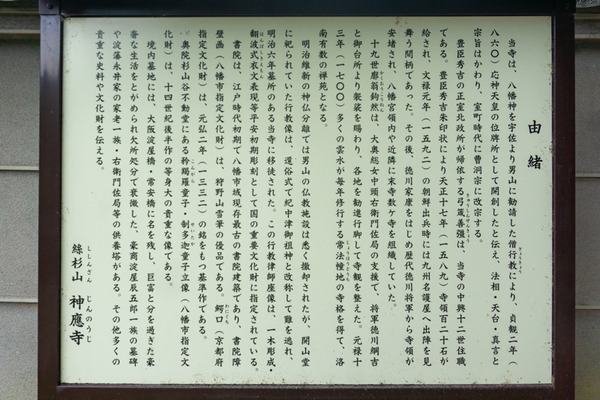 由緒
当寺は、八幡神を宇佐より男山に勧請した僧行教により、貞観二年(
八六〇)応神天皇の位牌所として開創したと伝え、法相・天台・真言と
宗旨はかわり、室町時代に曹洞宗に改宗する。
豊臣秀吉の正室北政所が帰依する弓箴善彊は、当寺の中興十二世住職
である。豊臣秀吉朱印状により天正十七年(一五八九)寺領百二十石が
給され、文禄元年(一五九二)の朝鮮出兵時には九州名護屋へ出陣を見
舞う間柄であった。その後、徳川家康をはじめ歴代徳川将軍から寺領が
安堵され、八幡宮領内や近隣に末寺数ヶ寺を組織していた。
十九世廓翁鉤然は、大奥総女中頭右衛門佐局の支援で、将軍徳川綱吉
と御台所より袈裟を賜わり、各地を勧進行脚して寺観を整えた。元禄十
三年(一七〇〇)多くの雲水が毎年修行する常法幢地の寺格を得て、洛
南有数の禅苑となる。
明治維新の神仏分離では男山の仏教施設は悉く撤却されたが、開山堂
に祀られていた行教像は、還俗式で紀中津御祖神と改称して難を逃れ、
明治六年墓所のある当寺に移徒された。この行教律師座像は、一木彫成・
翻波式衣文表現等平安初期彫刻として国の重要文化財に指定されている。
書院は、江戸時代初期で八幡市域現存最古の書院建築であり、書院障
壁画(八幡市指定文化財)は、狩野山雪筆の優品である。鰐口(京都府
指定文化財)は、元弘二年(一三三二)の銘をもつ基準作である。
奥院杉山谷不動堂にある矜羯羅童子・制多迦童子立像(八幡市指定文
化財)は、十四世紀後半作の等身大の貴重な像である。
境内墓地には、大阪淀屋橋・常安橋に名を残し、巨富と分を過ぎた豪
奢な生活をとがめられ欠所処分で衰微した、豪商淀屋辰五郎一族の墓碑
や淀藩永井家の家老一族・右衛門佐局等の供養塔がある。その他多くの
貴重な史料や文化財を伝える。
絲杉山 神應寺